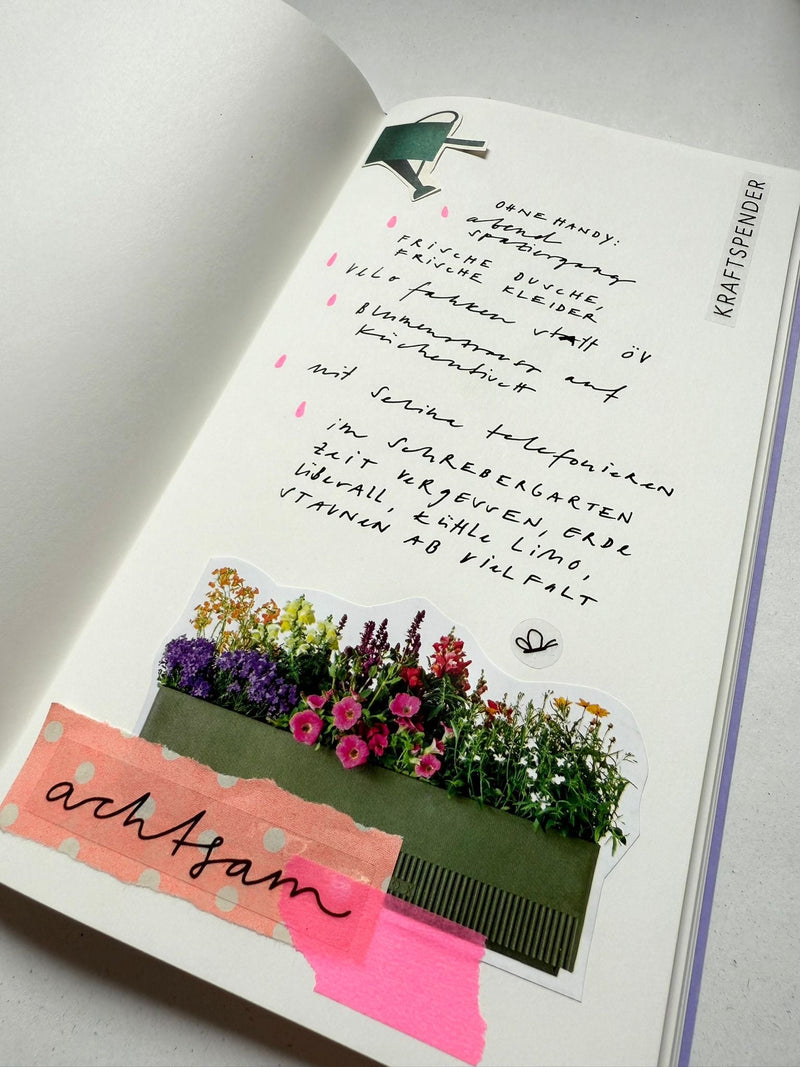 KRAFTSPENDER
OHNE HANDY:
abend
spaziergang
FRISCHE DUSCHE,
FRISCHE KLEIDER
velo fahren statt öv
Blumenstrauss auf
Küchentisch
mit Selina telefonieren
im SCHREBERGARTEN
ZEIT VERGESSEN, ERDE
ÜBERALL, KÜHLE LIMO,
STAUNEN AB VIELFALT
achtsam